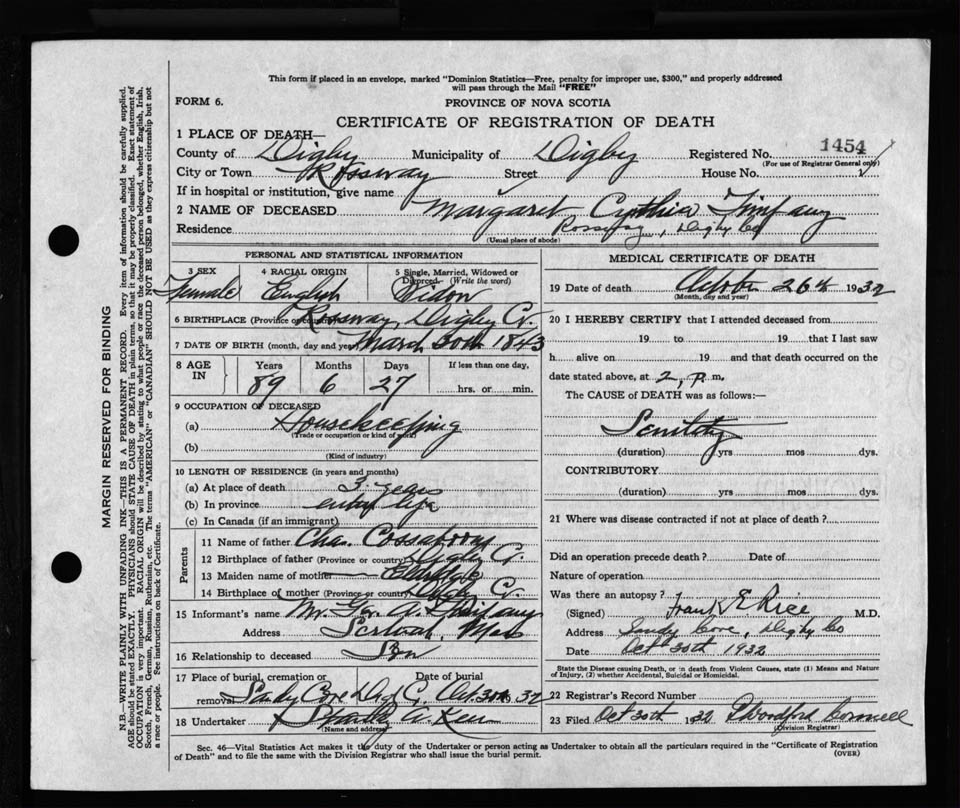 This form if placed in an envelope, marked "Dominion Statistics—Free, penalty for improper use, $300," and properly addressed
will pass through the Mail "FREE"
FORM 6.
PROVINCE OF NOVA SCOTIA
CERTIFICATE OF REGISTRATION OF DEATH
1 PLACE OF DEATH—
County of Digby Municipality of Digby Registered No. 1454
(For use of Registrar General only)
City or Town Rossway Street House No.
If in hospital or institution, give name
2 NAME OF DECEASED Margaret Cynthia
Residence Rossway, Digby Co
(Usual place of abode)
PERSONAL AND STATISTICAL INFORMATION
3 SEX 4 RACIAL ORIGIN 5 Single, Married, Widowed or
Divorced (Write the word)
Female English Widow
6 BIRTHPLACE (Province or country) Rossway, Digby Co.
7 DATE OF BIRTH (month, day and year) March 30th 1843
8 AGE IN Years Months Days If less than one day,
89 6 27 hrs. or min.
9 OCCUPATION OF DECEASED
(a) Housekeeping
(Trade or occupation or kind of work)
(b)
(Kind of industry)
10 LENGTH OF RESIDENCE (in years and months)
(a) At place of death 3 years
(b) In province entire life
(c) In Canada (if an immigrant)
Parents
11 Name of father Chas. Cossaboom
12 Birthplace of father (Province or country) Digby Co.
13 Maiden name of mother
14 Birthplace of mother (Province or country) Digby Co.
15 Informant's name Mr. A.
Address Mass
16 Relationship to deceased Son
17 Place of burial, cremation or
removal Sandy Cove Digby Co. Oct. 30th, 32
18 Undertaker Stanley A.
(Name and address)
MEDICAL CERTIFICATE OF DEATH
19 Date of death October 26th 1932
(Month, day and year)
20 I HEREBY CERTIFY that I attended deceased from
19 to 19 that I last saw
h alive on 19 and that death occurred on the
date stated above, at 2 P. m.
The CAUSE of DEATH was as follows:—
Senility
(duration) yrs mos dys.
CONTRIBUTORY
(duration) yrs mos dys.
21 Where was disease contracted if not at place of death?
Did an operation precede death? Date of
Nature of operation
Was there an autopsy?
(Signed) Frank E Rice M.D.
Address Sandy Cove, Digby Co
Date Oct 30th 1932
State the Disease causing Death, or in death from Violent Causes, state (1) Means and Nature
of Injury, (2) whether Accidental, Suicidal or Homicidal.
22 Registrar's Record Number
23 Filed Oct 30th 1932
(Division Registrar)
Sec. 46—Vital Statistics Act makes it the duty of the Undertaker or person acting as Undertaker to obtain all the particulars required in the "Certificate of Registration
of Death" and to file the same with the Division Registrar who shall issue the burial permit.
(OVER)
MARGIN RESERVED FOR BINDING
N.B.—WRITE PLAINLY WITH UNFADING INK—THIS IS A PERMANENT RECORD. Every item of information should be carefully supplied.
AGE should be stated EXACTLY. PHYSICIANS should STATE CAUSE OF DEATH in plain terms, so that it may be properly classified. Exact statement of
OCCUPATION is very important. RACIAL ORIGIN will be described by stating to what people or race the deceased person belonged, whether English, Irish,
Scotch, French, German, Russian, Ruthenian, etc. The terms "AMERICAN" or "CANADIAN" SHOULD NOT BE USED as they express citizenship but not
a race or people. See instructions on back of Certificate.